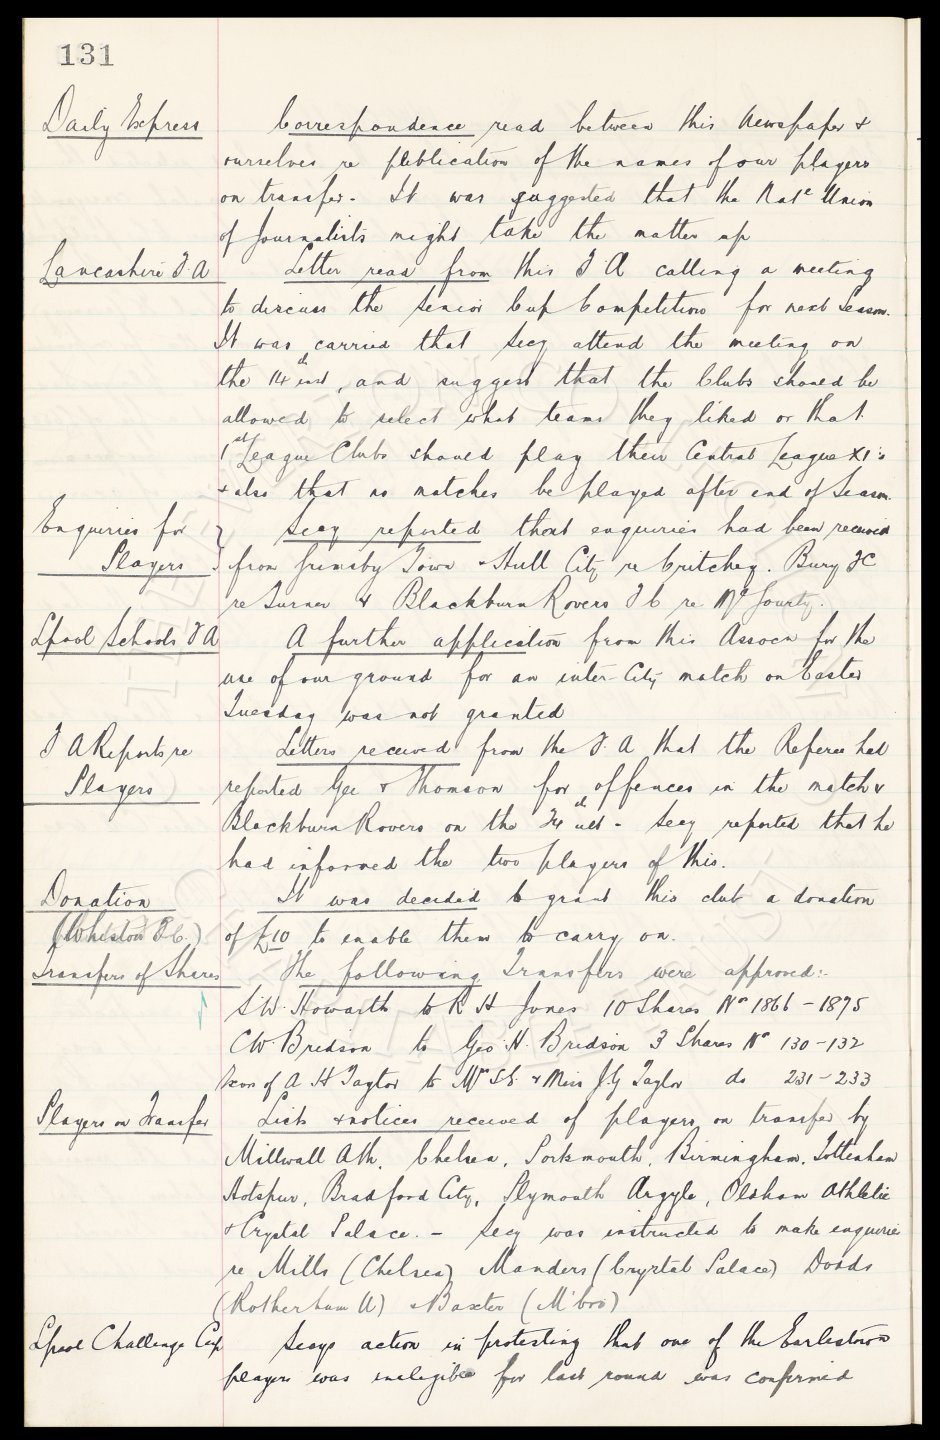 131
Daily Express Correspondence read between this Newspaper &
ourselves re publication of the names of our players
on transfer. It was suggested that the Natl Union
of Journalists might take the matter up
Lancashire F.A Letter read from this F A calling a meeting
to discuss the Senior Cup Competition for next Season.
It was carried that Secy attend the meeting on
the 14th inst, and suggest that the Clubs should be
allowed to select what teams they liked or that
1st League Clubs should play their Central League XI's
& also that no matches be played after end of Season.
Enquiries for Secy reported that enquiries had been received
Players from Grimsby Town & Hull City re Critchley. Bury FC
re Turner & Blackburn Rovers F C re McGourty.
Lpool Schools F A A further application from this Assocn for the
use of our ground for an inter-City match on Easter
Tuesday was not granted
F A Reports re Letters received from the F. A that the Referee had
Players reported Gee & Thomson for offences in the match v
Blackburn Rovers on the 24th ult - Secy reported that he
had informed the two players of this.
Donation It was decided to grant this club a donation
(Whiston F.C.) of £10 to enable them to carry on.
Transfers of Shares The following Transfers were approved:-
S.W. Howarth to R H Jones 10 Shares No 1866 - 1875
C W. Bredson to Geo H. Bredson 3 Shares No 130 - 132
Exors of A H Taylor to Mrs S E & Miss J G Taylor do 231 - 233
Players on Transfer Lists & notices received of players on transfer by
Millwall Ath, Chelsea, Portsmouth, Birmingham, Tottenham
Hotspur, Bradford City, Plymouth Argyle, Oldham Athletic
& Crystal Palace. - Secy was instructed to make enquiries
re Mills (Chelsea) Manders (Crystal Palace) Dodds
(Rotherham U) & Baxter (M'bro)
Lpool Challenge Cup Secys action in protesting that one of the Earlestown
players was ineligible for last round was confirmed